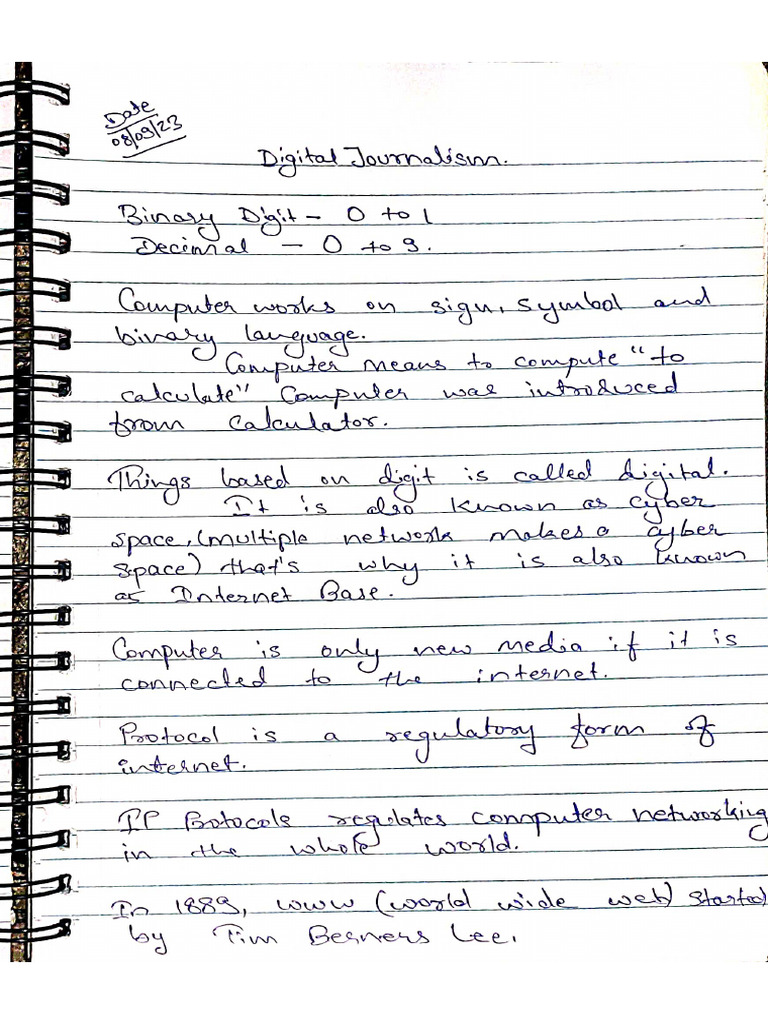 Date
08/09/23
Digital Journalism.
Binary Digit - 0 to 1
Decimal - 0 to 9.
Computer works on sign, symbol and
binary language.
Computer means to compute "to
calculate" Computer was introduced
from calculator.
Things based on digit is called digital.
It is also known as cyber
space, (multiple network makes a cyber
space) that's why it is also known
as Internet Base.
Computer is only new media if it is
connected to the internet.
Protocol is a regulatory form of
internet.
IP Protocols regulates computer networking
in the whole world.
In 1889, www (world wide web) started
by Tim Berners Lee.